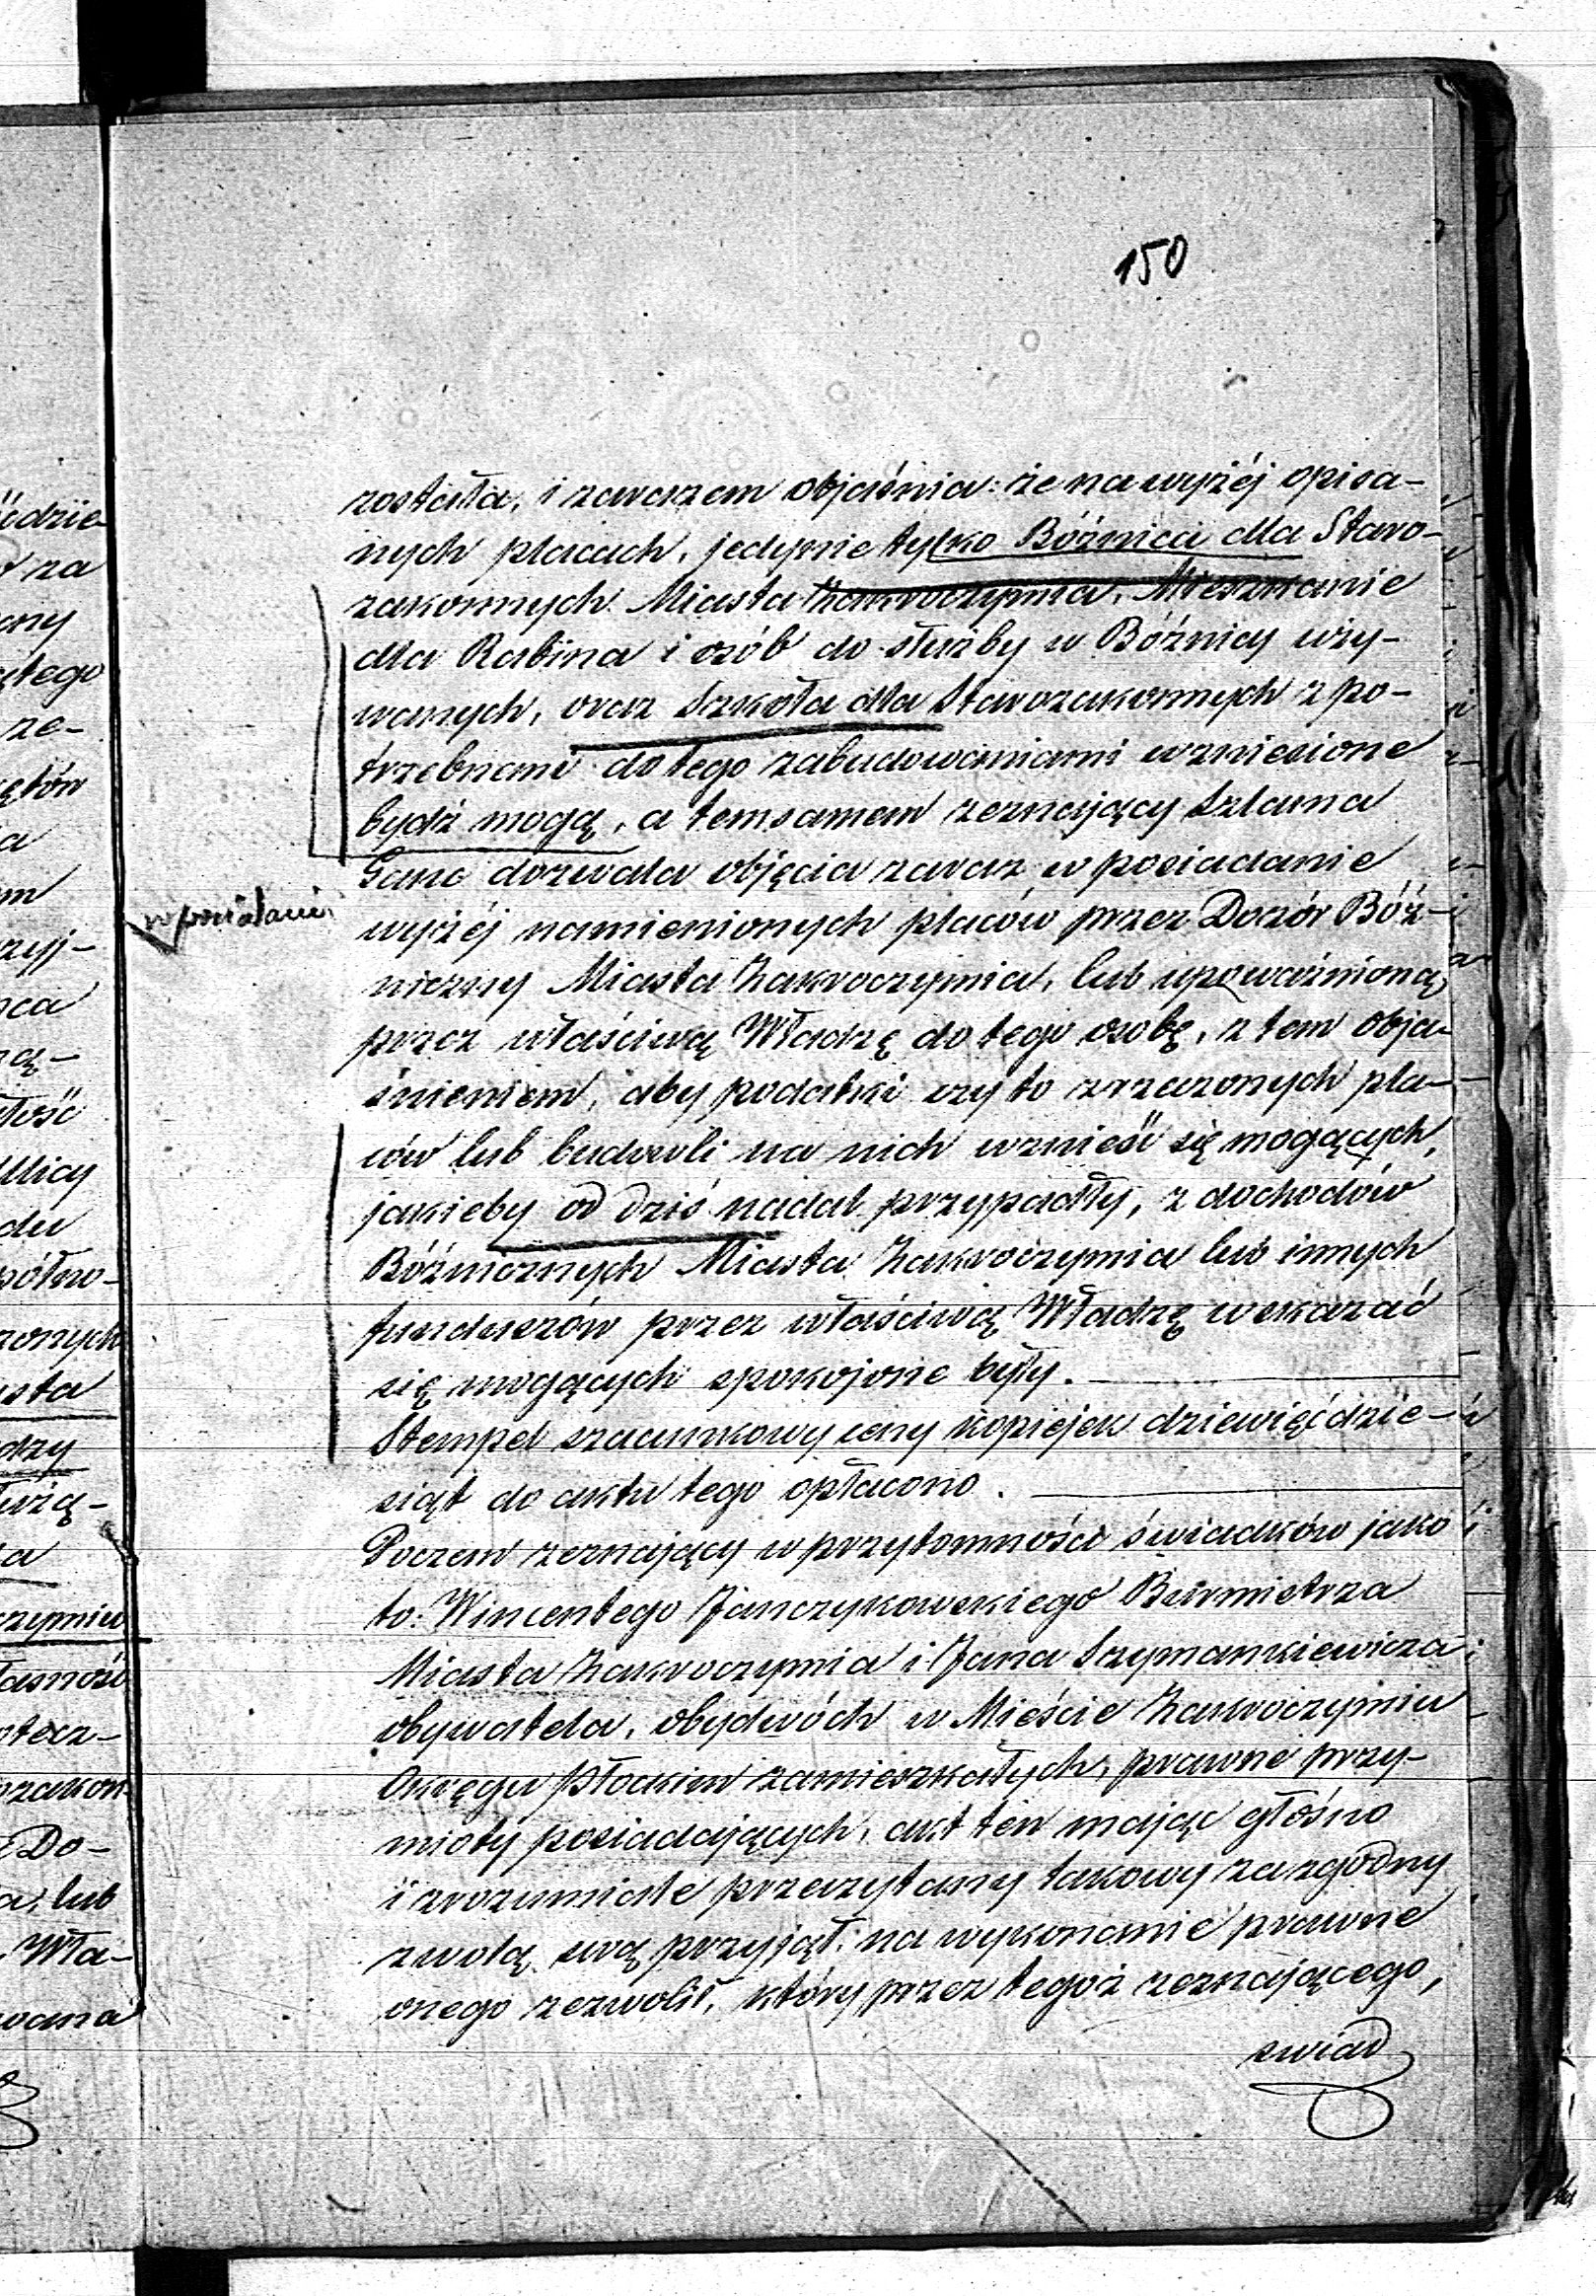 150
została, i zarazem objaśnia: że na wyżéj opisa-
nych placach, jedynie tylko Bóźnica dla Staro-
zakonnych Miasta Zakroczymia, Mieszkanie
dla Rabina i osób do służby w Bóźnicy uży-
wanych, oraz Szkoła dla Starozakonnych z po-
trzebnemi do tego zabudowaniami wzniesione
bydź mogą, a temsamem zeznający Szlama
dozwala objęcia zaraz w posiadanie
w posiadanie
wyżéj namienionych placów przez Dozór Bóź-
niczny Miasta Zakroczymia, lub upoważnioną
przez właściwą Władzę do tego osobę, z tem obja-
śnieniem, aby podatki czy to z rzeczonych pla-
ców lub budowli na nich wznieść się mogących,
jakieby od dziś nadal przypadły, z dochodów
Bóźnicznych Miasta Zakroczymia lub innych
funduszów przez właściwą Władzę wskazać
się mogących spokojone były.
Stempel szacunkowy ceny kopiejek dziewięćdzie-
siąt do aktu tego opłacono.
Poczem zeznający w przytomności świadków jako
to: Wincentego Janczykowskiego Burmistrza
Miasta Zakroczymia i Jana Szymankiewicza
obywatela, obydwóch w Mieście Zakroczymiu
Okręgu Płockim zamieszkałych, prawne przy-
mioty posiadających, akt ten mając głośno
i zrozumiale przeczytany takowy za zgodny
z wolą swą przyjął, na wykonanie prawne
onego zezwolił, który przez tegoż zeznającego,
świad